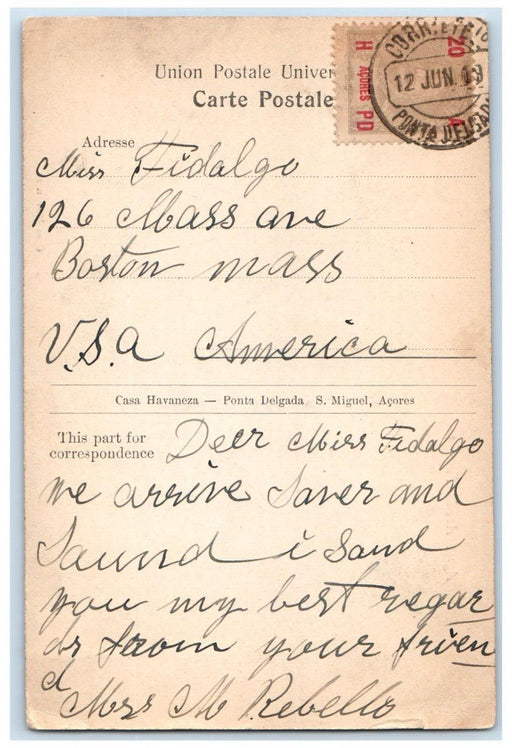 Union Postale Univer
Carte Postale
20
H AÇORES PD
12 JUN. 09
PONTA DELGADA
Adresse
Miss Fidalgo
126 Mass ave
Boston mass
U.S.a America
Casa Havaneza — Ponta Delgada S. Miguel, Açores
This part for
correspondence
Deer Miss Fidalgo
we arrive Saver and
Saund i Sand
you my best regar
ds from your frien
d
Mrs M Rebello